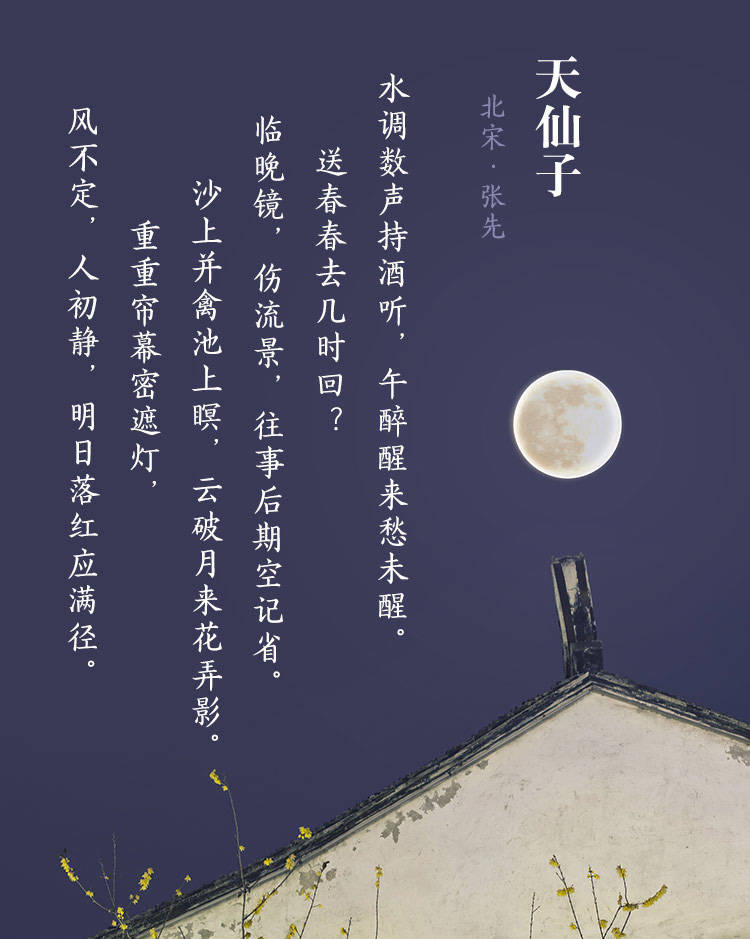 天仙子
北宋·张先
水调数声持酒听，午醉醒来愁未醒。
送春春去几时回？
临晚镜，伤流景，往事后期空记省。
沙上并禽池上暝，云破月来花弄影。
重重帘幕密遮灯，
风不定，人初静，明日落红应满径。